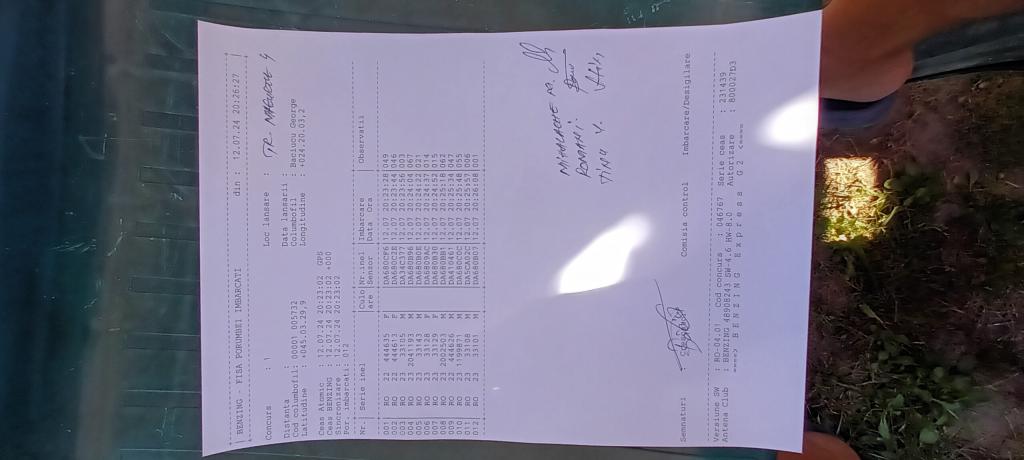 BENZING - FISA PORUMBEI IMBARCATI din : 12.07.24 20:26:27
Concurs : 1 Loc lansare : TR- MAGURELE 4
Distanta : Data lansarii :
Cod columbofil: 00001 005732 Columbofil : Baciucu George
Latitudine : +045.03.29,9 Longitudine : 0024.20.03,2
Ceas Atomic : 12.07.24 20:23:02 GPS
Ceas BENZING : 12.07.24 20:23:02 +000
Sincronizare : 12.07.24 20:23:02
Por. imbarcati: 012
Nr. Serie inel Culo Nr.inel Imbarcare Observatii
are Senzor Data Ora
001 RO 22 444635 F DA680CF6 12.07 20:23:28 049
002 RO 22 444613 F DA680C2E 12.07 20:23:44 046
003 RO 23 33105 M DA34C377 12.07 20:23:56 003
004 RO 23 2041193 M DA680B96 12.07 20:24:04 067
005 RO 23 33143 M DA680B0E 12.07 20:24:22 021
006 RO 23 33128 F DA6809AC 12.07 20:24:37 014
007 RO 23 33129 F DA680B3B 12.07 20:24:52 015
008 RO 23 2002503 M DA680BB1 12.07 20:25:18 062
009 RO 22 444626 M DA410461 12.07 20:25:34 047
010 RO 21 199871 M DA680CCC 12.07 20:25:48 055
011 RO 23 33108 M DA5CAD2C 12.07 20:25:57 006
012 RO 23 33101 M DA680BD7 12.07 20:26:08 001
MIHALACHE M.
ROMANI.
TINU V.
Semnaturi Comisia control Imbarcare/Desigilare
Versiune SW : RO-04.01 Cod concurs : 046767 Serie ceas : 231439
Antena Club : BENZING 48908243 SW-4.6 HW-8.0 Autorizare : 800027D3
===> BENZING Express G2 <===